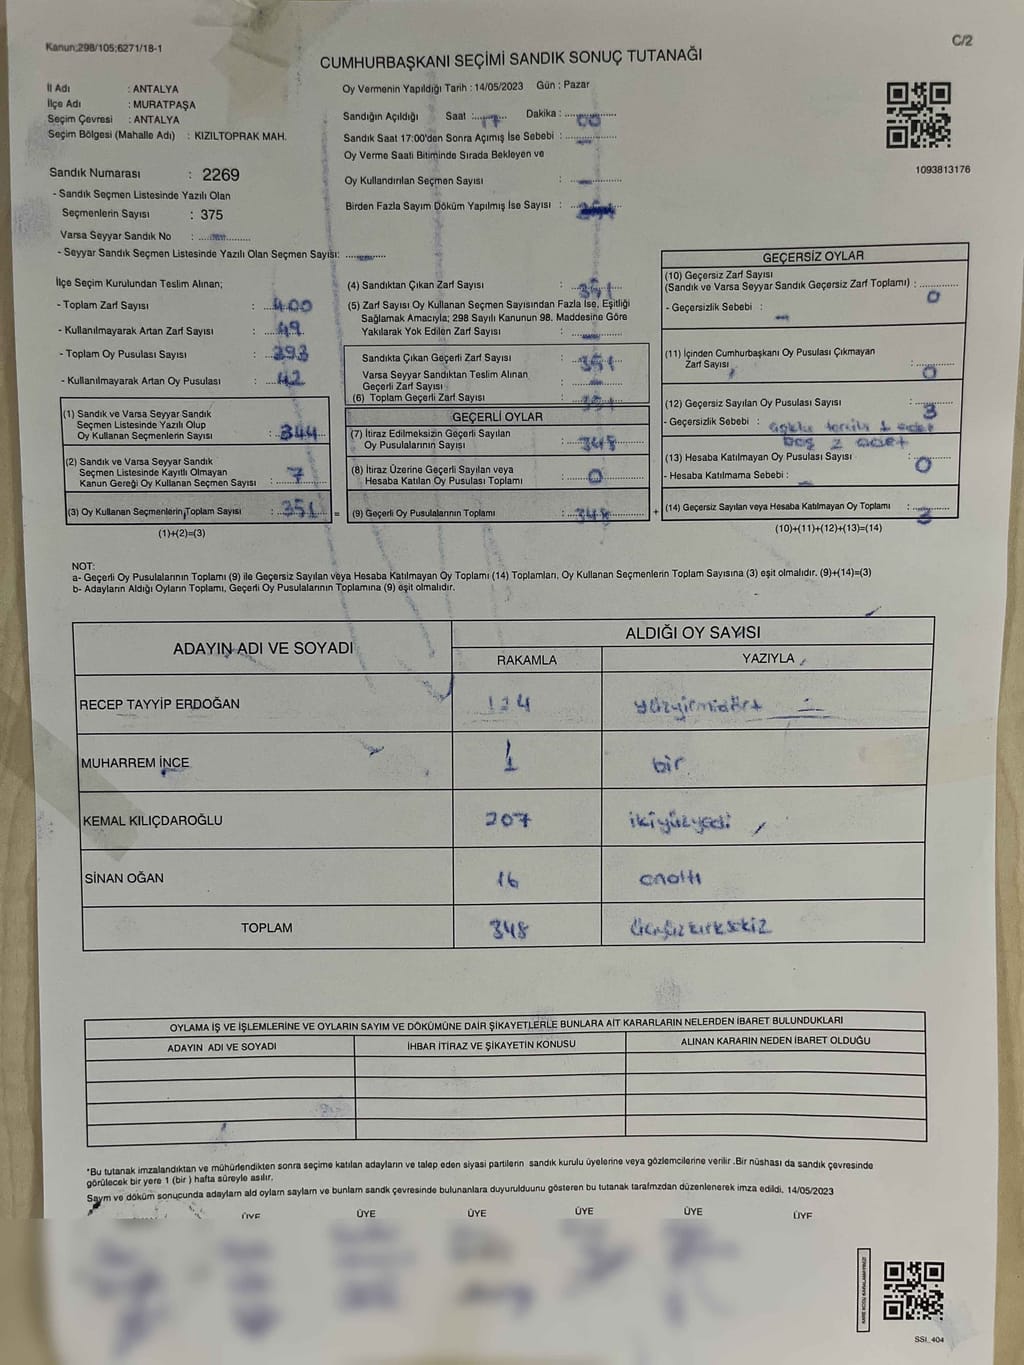 Kanun;298/105;6271/18-1
C/2
CUMHURBAŞKANI SEÇİMİ SANDIK SONUÇ TUTANAĞI
İl Adı : ANTALYA
İlçe Adı : MURATPAŞA
Seçim Çevresi : ANTALYA
Seçim Bölgesi (Mahalle Adı) : KIZILTOPRAK MAH.
Sandık Numarası : 2269
- Sandık Seçmen Listesinde Yazılı Olan
Seçmenlerin Sayısı : 375
Varsa Seyyar Sandık No :
- Seyyar Sandık Seçmen Listesinde Yazılı Olan Seçmen Sayısı:
Oy Vermenin Yapıldığı Tarih : 14/05/2023 Gün : Pazar
Sandığın Açıldığı Saat : 17 Dakika : 00
Sandık Saat 17:00'den Sonra Açımış İse Sebebi :
Oy Verme Saati Bitiminde Sırada Bekleyen ve
Oy Kullandırılan Seçmen Sayısı :
Birden Fazla Sayım Döküm Yapılmış İse Sayısı :
1093813176
İlçe Seçim Kurulundan Teslim Alınan;
- Toplam Zarf Sayısı : 400
- Kullanılmayarak Artan Zarf Sayısı : 49
- Toplam Oy Pusulası Sayısı : 393
- Kullanılmayarak Artan Oy Pusulası : 42
(1) Sandık ve Varsa Seyyar Sandık
Seçmen Listesinde Yazılı Olup
Oy Kullanan Seçmenlerin Sayısı : 344
(2) Sandık ve Varsa Seyyar Sandık
Seçmen Listesinde Kayıtlı Olmayan
Kanun Gereği Oy Kullanan Seçmen Sayısı : 7
(3) Oy Kullanan Seçmenlerin Toplam Sayısı : 351 =
(1)+(2)=(3)
(4) Sandıktan Çıkan Zarf Sayısı : 351
(5) Zarf Sayısı Oy Kullanan Seçmen Sayısından Fazla İse, Eşitliği
Sağlamak Amacıyla; 298 Sayılı Kanunun 98. Maddesine Göre
Yakılarak Yok Edilen Zarf Sayısı :
Sandıkta Çıkan Geçerli Zarf Sayısı : 351
Varsa Seyyar Sandıktan Teslim Alınan
Geçerli Zarf Sayısı :
(6) Toplam Geçerli Zarf Sayısı : 351
GEÇERLİ OYLAR
(7) İtiraz Edilmeksizin Geçerli Sayılan
Oy Pusulalarının Sayısı : 348
(8) İtiraz Üzerine Geçerli Sayılan veya
Hesaba Katılan Oy Pusulası Toplamı : 0
(9) Geçerli Oy Pusulalarının Toplamı : 348 +
GEÇERSİZ OYLAR
(10) Geçersiz Zarf Sayısı
(Sandık ve Varsa Seyyar Sandık Geçersiz Zarf Toplamı) : 0
- Geçersizlik Sebebi :
(11) İçinden Cumhurbaşkanı Oy Pusulası Çıkmayan
Zarf Sayısı : 0
(12) Geçersiz Sayılan Oy Pusulası Sayısı : 3
- Geçersizlik Sebebi : 1 adet
boş 2 adet
(13) Hesaba Katılmayan Oy Pusulası Sayısı : 0
- Hesaba Katılmama Sebebi :
(14) Geçersiz Sayılan veya Hesaba Katılmayan Oy Toplamı : 3
(10)+(11)+(12)+(13)=(14)
NOT:
a- Geçerli Oy Pusulalarının Toplamı (9) ile Geçersiz Sayılan veya Hesaba Katılmayan Oy Toplamı (14) Toplamları, Oy Kullanan Seçmenlerin Toplam Sayısına (3) eşit olmalıdır. (9)+(14)=(3)
b- Adayların Aldığı Oyların Toplamı, Geçerli Oy Pusulalarının Toplamına (9) eşit olmalıdır.
ADAYIN ADI VE SOYADI
ALDIĞI OY SAYISI
RAKAMLA YAZIYLA
RECEP TAYYİP ERDOĞAN 124 yüzyirmidört
MUHARREM İNCE 1 bir
KEMAL KILIÇDAROĞLU 207 ikiyüzyedi
SİNAN OĞAN 16 onaltı
TOPLAM 348 üçyüzkırksekiz
OYLAMA İŞ VE İŞLEMLERİNE VE OYLARIN SAYIM VE DÖKÜMÜNE DAİR ŞİKAYETLERLE BUNLARA AİT KARARLARIN NELERDEN İBARET BULUNDUKLARI
ADAYIN ADI VE SOYADI İHBAR İTİRAZ VE ŞİKAYETİN KONUSU ALINAN KARARIN NEDEN İBARET OLDUĞU
*Bu tutanak imzalandıktan ve mühürlendikten sonra seçime katılan adayların ve talep eden siyasi partilerin sandık kurulu üyelerine veya gözlemcilerine verilir .Bir nüshası da sandık çevresinde
görülecek bir yere 1 (bir ) hafta süreyle asılır.
Sayım ve döküm sonucunda adayların ald oyların sayların ve bunların sandk çevresinde bulunanlara duyurulduunu gösteren bu tutanak tarafmzdan düzenlenerek imza edildi, 14/05/2023
ÜYE ÜYE ÜYE ÜYE ÜYE ÜYE
SSI_404